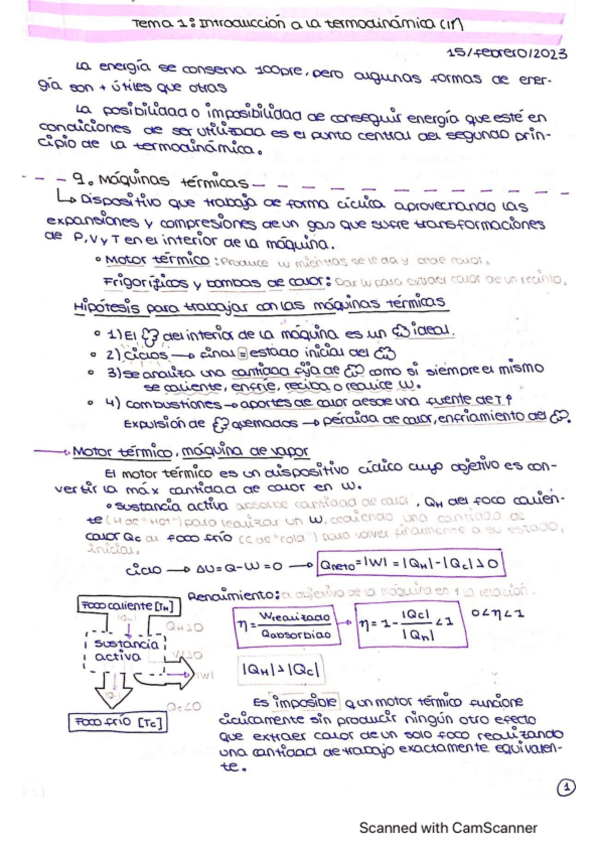 Tema 1: Introducción a la termodinámica (II)
15/febrero/2023
La energía se conserva 100pre, pero algunas formas de ener-
gía son + útiles que otras
La posibilidad o imposibilidad de conseguir energía que esté en
condiciones de ser utilizada es el punto central del segundo prin-
cipio de la termodinámica.
9. Máquinas térmicas
↳ Dispositivo que trabaja de forma cíclica aprovechando las
expansiones y compresiones de un gas que sufre transformaciones
de P, V y T en el interior de la máquina.
• Motor térmico: Produce W mientras se le da y cede calor.
Frigoríficos y bombas de calor: Dar W para extraer calor de un recinto.
Hipótesis para trabajar con las máquinas térmicas
• 1) El del interior de la máquina es un ideal.
• 2) Ciclos → final = estado inicial del
• 3) se analiza una cantidad fija de como si siempre el mismo
se caliente, enfríe, reciba o realice W.
• 4) Combustiones → aportes de calor desde una fuente de T↑
Expulsión de quemados → pérdida de calor, enfriamiento del
→ Motor térmico, máquina de vapor
El motor térmico es un dispositivo cíclico cuyo objetivo es con-
vertir la máx cantidad de calor en W.
• Sustancia activa absorbe cantidad de calor, QH del foco calien-
te (H de "Hot") para realizar un W, cediendo una cantidad de
calor QC al foco frío (C de "cold") para volver finalmente a su estado
inicial.
ciclo → ΔU = Q - W = 0 → Qneto = |W| = |QH| - |QC| > 0
Rendimiento: objetivo de la máquina en la relación.
Foco caliente [TH]
|QH|
QH>0
η = Wrealizado / Qabsorbido → η = 1 - |QC| / |QH| < 1
0<η<1
sustancia
activa
W>0
|W|
|QH| > |QC|
QC<0
Foco frío [TC]
Es imposible q un motor térmico funcione
cíclicamente sin producir ningún otro efecto
que extraer calor de un solo foco realizando
una cantidad de trabajo exactamente equivalen-
te.
1
Scanned with CamScanner